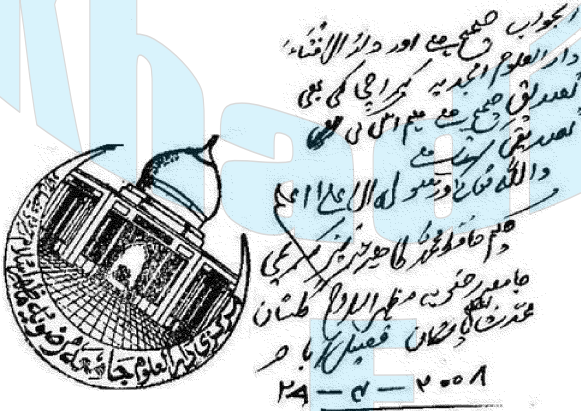 الجواب صحیح ہے اور دارالافتاء
دارالعلوم امجدیہ کراچی کی بھی
تصدیق صحیح ہے ہم اس کی بھی
تصدیق کرتے ہیں
واللہ تعالیٰ ورسولہ الاعلیٰ اعلم
حافظ محمد
جامعہ رضویہ مظہر اسلام گلستان
محدث اعظم پاکستان فیصل آباد
۲۹ - ۴ - ۲۰۰۸
مرکزی دارالعلوم جامعہ رضویہ مظہر اسلام
Khad